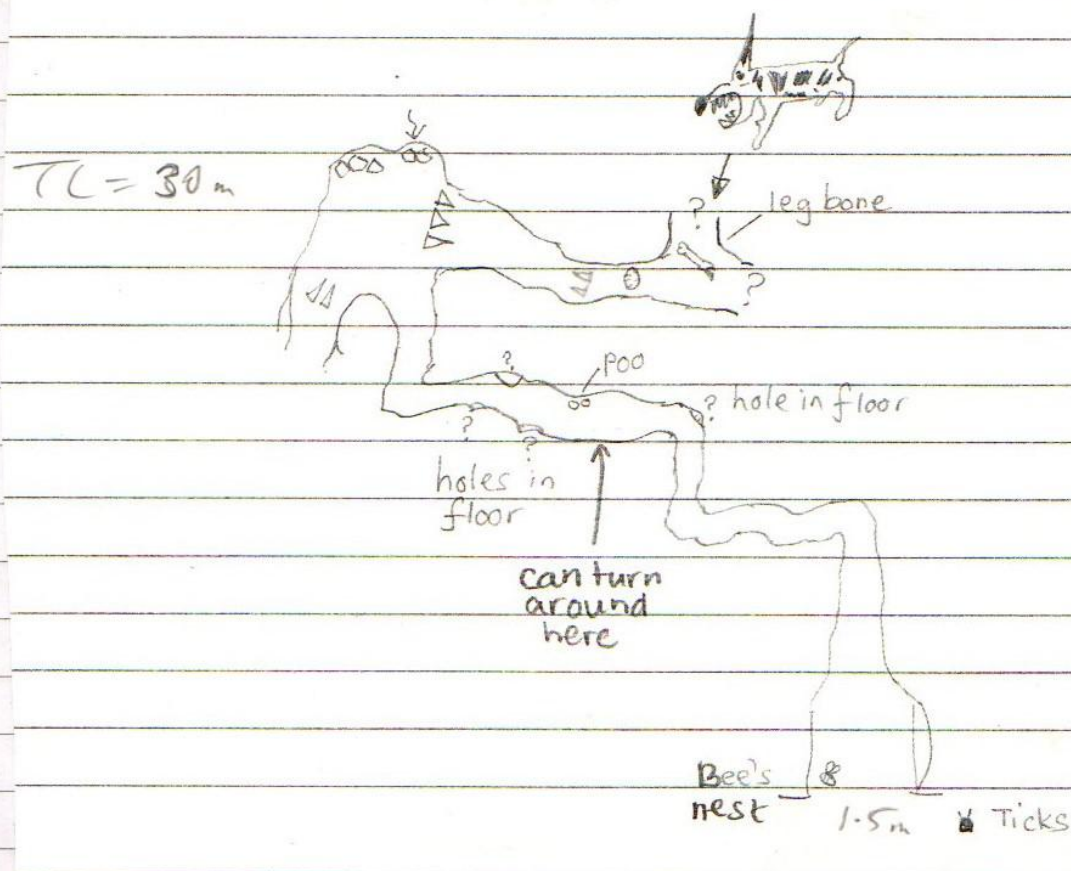 TL = 30m
?
leg bone
?
?
poo
? hole in floor
?
?
holes in
floor
can turn
around
here
Bee's
nest
1.5m
Ticks